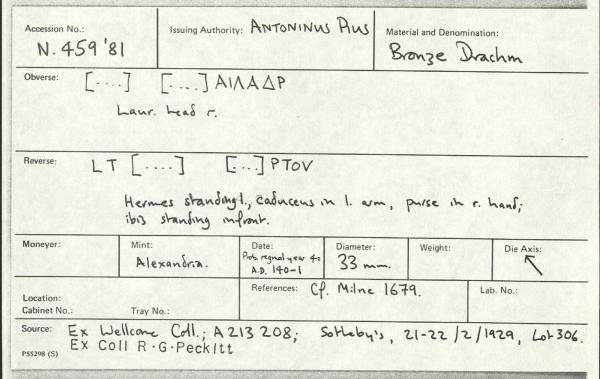 Accession No.: N. 459 '81
Issuing Authority: ANTONINUS PIUS
Material and Denomination: Bronze Drachm
Obverse: [....] [....] ΑΙΛΑΔΡ
Laur. head r.
Reverse: LT [.....] [...] PTOV
Hermes standing l., caduceus in l. arm, purse in r. hand;
ibis standing in front.
Moneyer:
Mint: Alexandria.
Date: Prob. regnal year 4:
A.D. 140-1
Diameter: 33 mm.
Weight:
Die Axis: ↖
Location:
Cabinet No.: Tray No.:
References: Cf. Milne 1679.
Lab. No.:
Source: Ex Wellcome Coll.; A213 208; Sotheby's, 21-22/2/1929, Lot 306.
Ex Coll R.G. Peckitt
PS5298 (S)